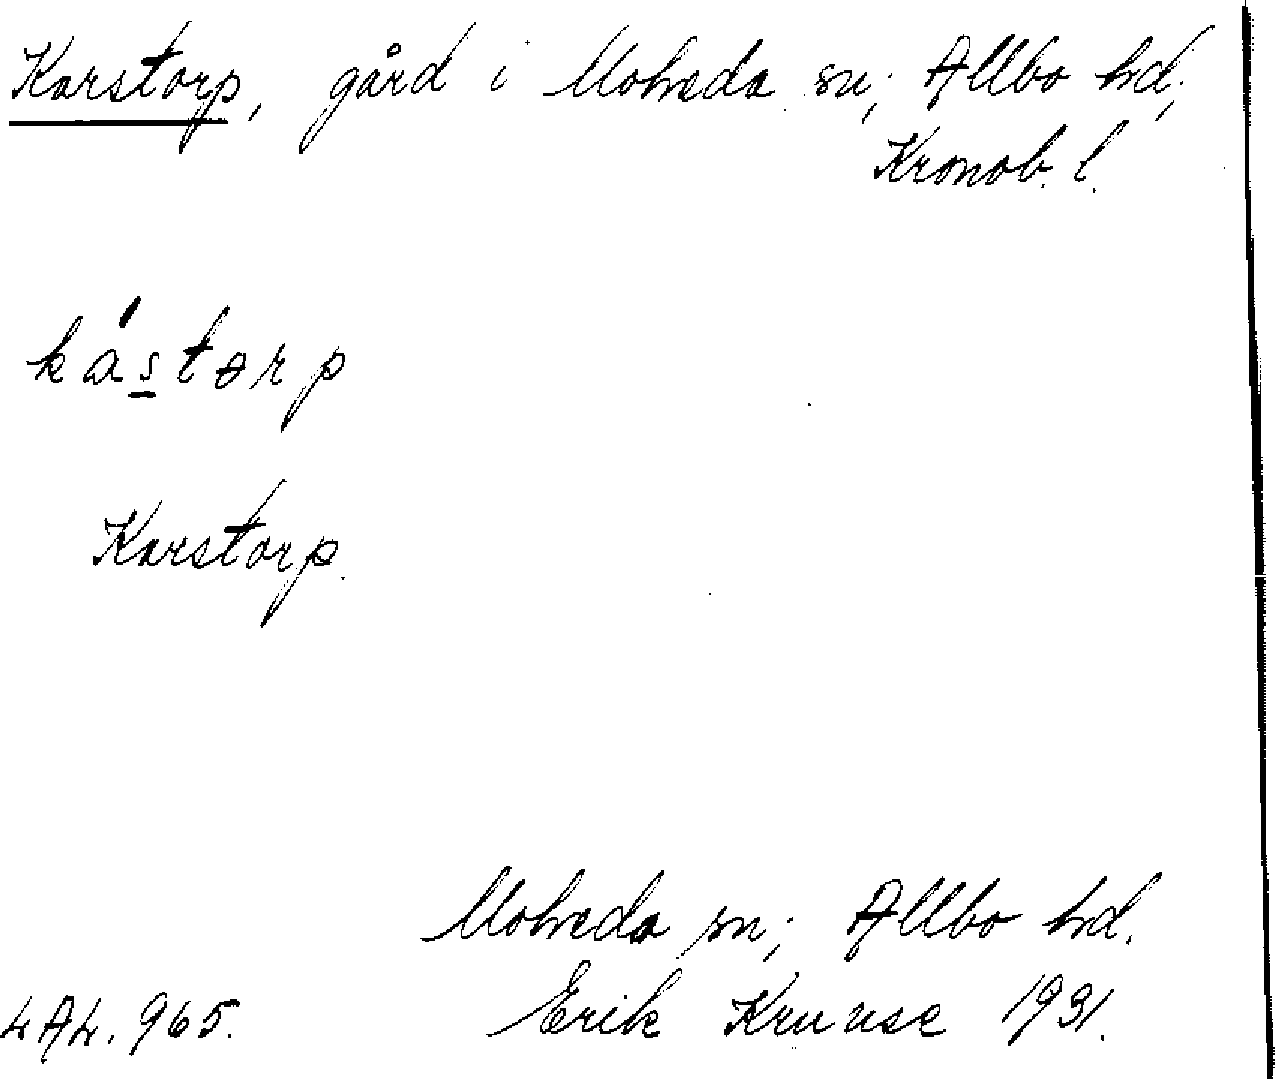 Karstorp, gård i Moheda sn; Allbo hd;
Kronob. l.
kás̲tɵrp
Karstorp.
Moheda sn; Allbo hd.
LAL. 965. Erik Kruuse 1931.